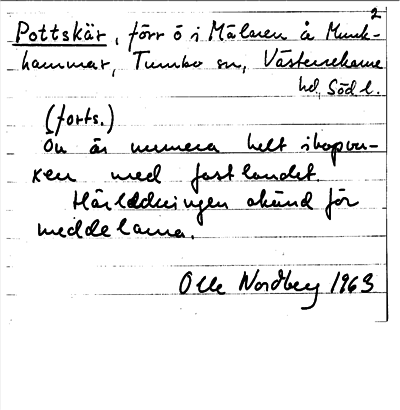 2
Pottskär, förr ö i Mälaren å Munk-
hammar, Tumbo sn, Västerrekarne
hd, Södl.
(forts.)
Ön är numera helt ihopvu-
xen med fastlandet.
Härledningen okänd för
meddelarna.
Olle Nordberg 1963